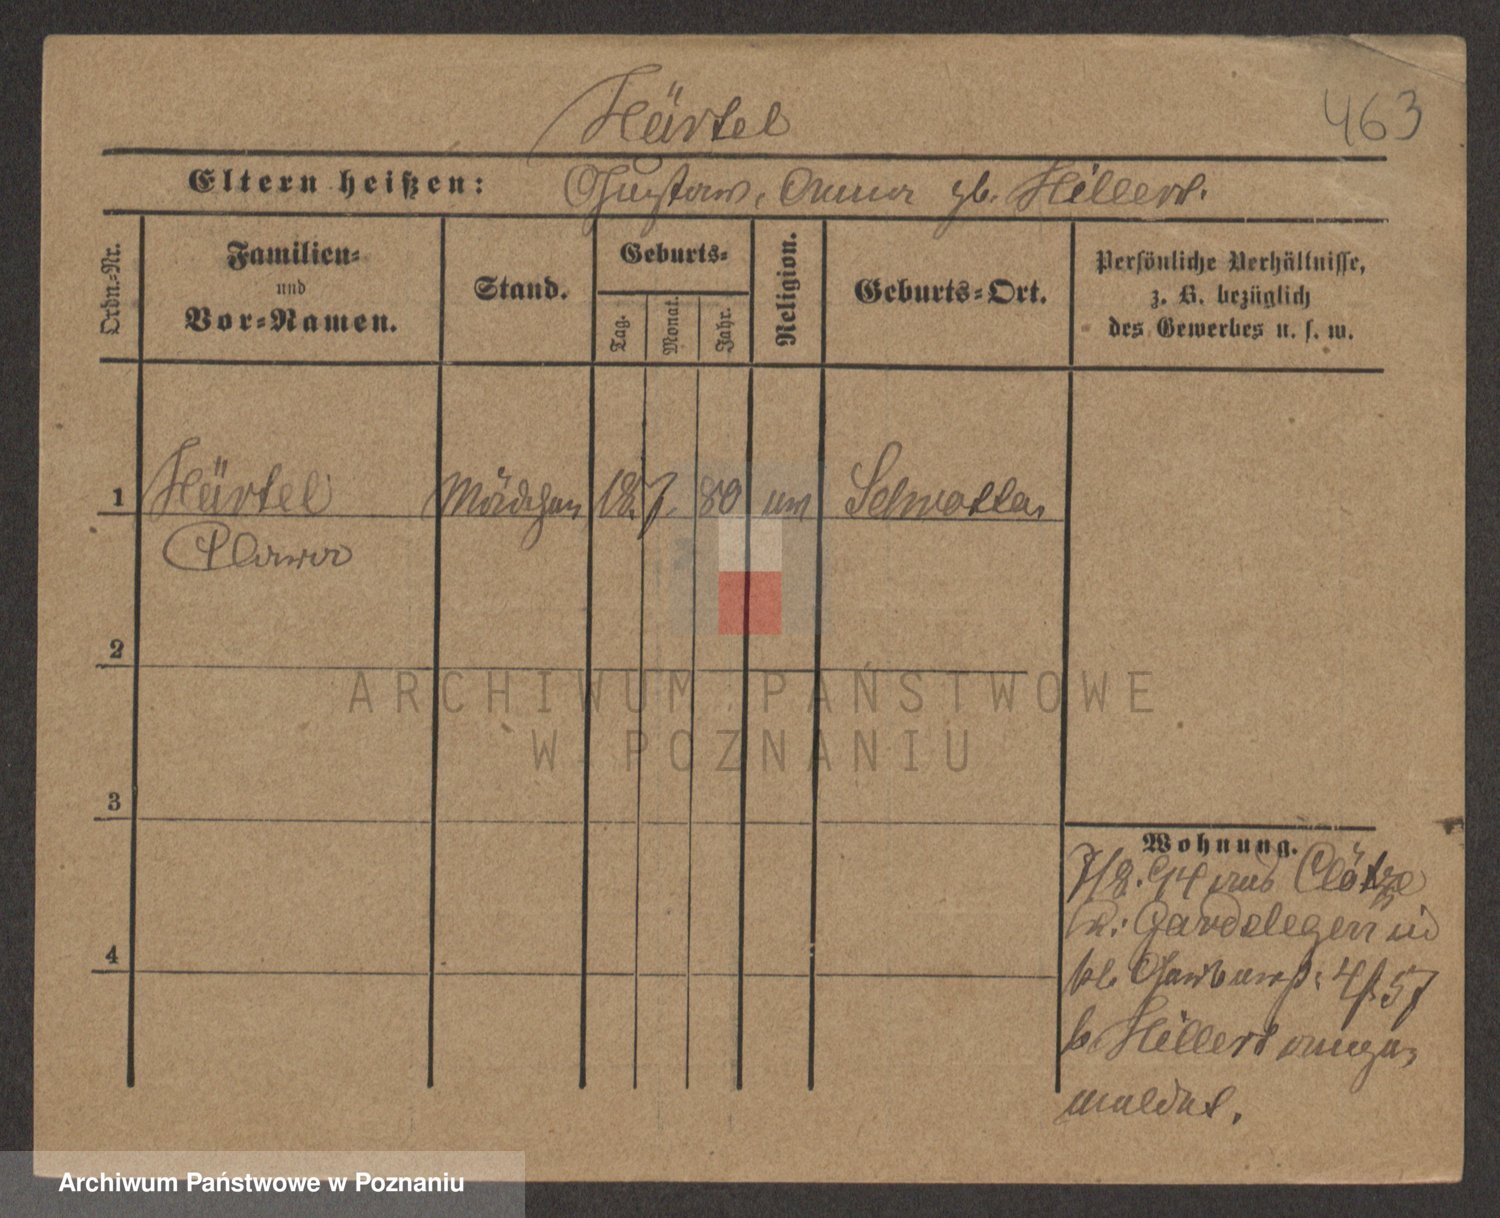 Härtel
463
Eltern heißen: Gustav, Anna gb. Hillert.
Ordn.-Nr.
Familien-
und
Vor-Namen.
Stand.
Geburts-
Tag.
Monat.
Jahr.
Religion.
Geburts-Ort.
Persönliche Verhältnisse,
z. B. bezüglich
des Gewerbes u. s. w.
1 Härtel Mädchen 18. 7. 80
Clara
2
3
4
Wohnung.
7/8. 94 aus Clötze
Kr. Gardelegen
57
b. Hillert ange-
meldet.
ARCHIWUM PAŃSTWOWE
W POZNANIU
Archiwum Państwowe w Poznaniu